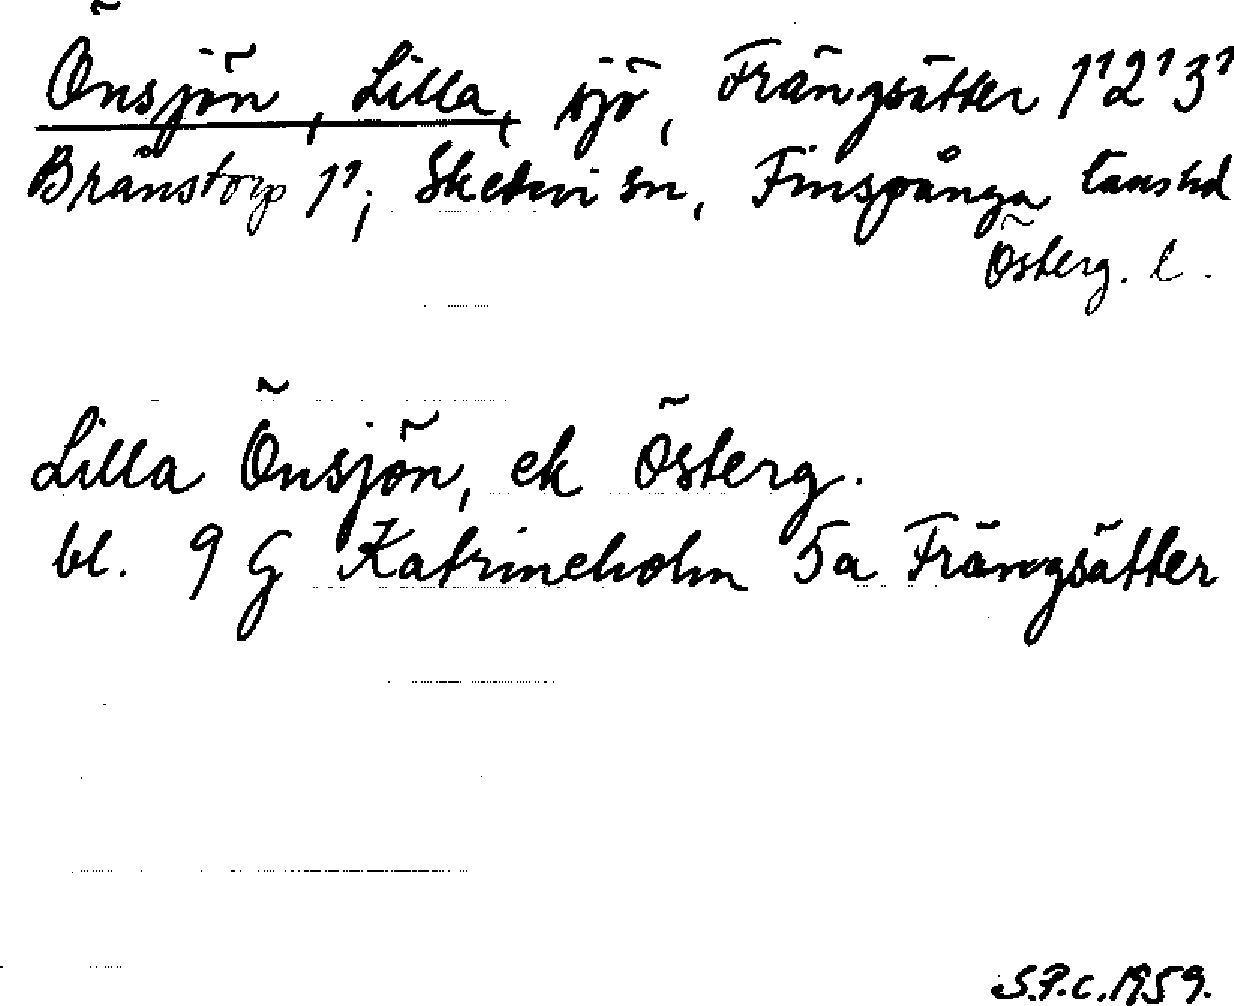 Önsjön, Lilla, sjö, Frängsätter 1¹ 2¹ 3¹
Brånstorp 1¹; Skedevi sn, Finspånga länshd
Österg. l.
Lilla Önsjön, ek Österg.
bl. 9 G Katrineholm 5a Frängsätter
S.P.c. 1959.